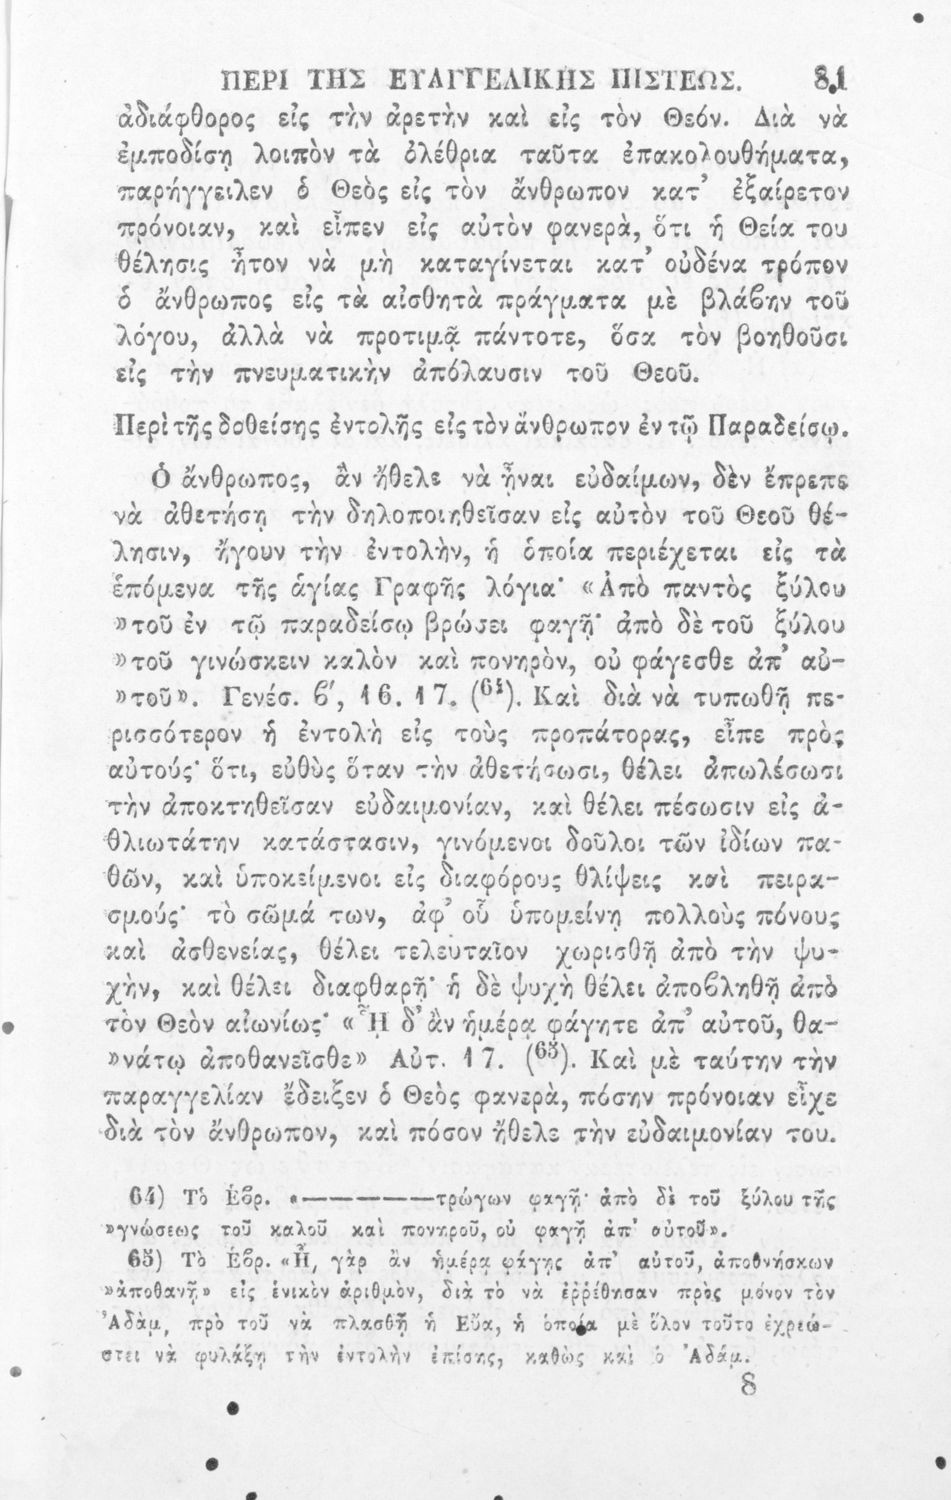 ΠΕΡΙ ΤΗΣ ΕΥΑΓΓΕΛΙΚΗΣ ΠΙΣΤΕΩΣ. 81
ἀδιάφθορος εἰς τὴν ἀρετὴν καὶ εἰς τὸν Θεόν. Διὰ νὰ
ἐμποδίσῃ λοιπὸν τὰ ὀλέθρια ταῦτα ἐπακολουθήματα,
παρήγγειλεν ὁ Θεὸς εἰς τὸν ἄνθρωπον κατ' ἐξαίρετον
πρόνοιαν, καὶ εἶπεν εἰς αὐτὸν φανερὰ, ὅτι ἡ Θεία του
θέλησις ἦτον νὰ μὴ καταγίνεται κατ' οὐδένα τρόπον
ὁ ἄνθρωπος εἰς τὰ αἰσθητὰ πράγματα μὲ βλάϐην τοῦ
λόγου, ἀλλὰ νὰ προτιμᾷ πάντοτε, ὅσα τὸν βοηθοῦσι
εἰς τὴν πνευματικὴν ἀπόλαυσιν τοῦ Θεοῦ.
Περὶ τῆς δοθείσης ἐντολῆς εἰς τὸν ἄνθρωπον ἐν τῷ Παραδείσῳ.
Ὁ ἄνθρωπος, ἂν ἤθελε νὰ ᾖναι εὐδαίμων, δὲν ἔπρεπε
νὰ ἀθετήσῃ τὴν δηλοποιηθεῖσαν εἰς αὐτὸν τοῦ Θεοῦ θέ-
λησιν, ἤγουν τὴν ἐντολὴν, ἡ ὁποία περιέχεται εἰς τὰ
ἑπόμενα τῆς ἁγίας Γραφῆς λόγια· «Ἀπὸ παντὸς ξύλου
»τοῦ ἐν τῷ παραδείσῳ βρώσει φαγῇ· ἀπὸ δὲ τοῦ ξύλου
»τοῦ γινώσκειν καλὸν καὶ πονηρὸν, οὐ φάγεσθε ἀπ' αὐ-
»τοῦ». Γενέσ. ϐ', 16. 17. (64). Καὶ διὰ νὰ τυπωθῇ πε-
ρισσότερον ἡ ἐντολὴ εἰς τοὺς προπάτορας, εἶπε πρὸς
αὐτούς· ὅτι, εὐθὺς ὅταν τὴν ἀθετήσωσι, θέλει ἀπωλέσωσι
τὴν ἀποκτηθεῖσαν εὐδαιμονίαν, καὶ θέλει πέσωσιν εἰς ἀ-
θλιωτάτην κατάστασιν, γινόμενοι δοῦλοι τῶν ἰδίων πα-
θῶν, καὶ ὑποκείμενοι εἰς διαφόρους θλίψεις καὶ πειρα-
σμούς· τὸ σῶμά των, ἀφ' οὗ ὑπομείνῃ πολλοὺς πόνους
καὶ ἀσθενείας, θέλει τελευταῖον χωρισθῇ ἀπὸ τὴν ψυ-
χὴν, καὶ θέλει διαφθαρῇ· ἡ δὲ ψυχὴ θέλει ἀποϐληθῇ ἀπὸ
τὸν Θεὸν αἰωνίως· «ᾟ δ' ἂν ἡμέρᾳ φάγητε ἀπ' αὐτοῦ, θα-
»νάτῳ ἀποθανεῖσθε» Αὐτ. 17. (65). Καὶ μὲ ταύτην τὴν
παραγγελίαν ἔδειξεν ὁ Θεὸς φανερὰ, πόσην πρόνοιαν εἶχε
διὰ τὸν ἄνθρωπον, καὶ πόσον ἤθελε τὴν εὐδαιμονίαν του.
64) Τὸ Ἑβρ. «—————τρώγων φαγῇ· ἀπὸ δὲ τοῦ ξύλου τῆς
»γνώσεως τοῦ καλοῦ καὶ πονηροῦ, οὐ φαγῇ ἀπ' αὐτοῦ».
65) Τὸ Ἑβρ. «ᾟ, γὰρ ἂν ἡμέρᾳ φάγῃς ἀπ' αὐτοῦ, ἀποθνήσκων
»ἀποθανῇ» εἰς ἑνικὸν ἀριθμὸν, διὰ τὸ νὰ ἐῤῥέθησαν πρὸς μόνον τὸν
Ἀδὰμ, πρὸ τοῦ νὰ πλασθῇ ἡ Εὔα, ἡ ὁποία μὲ ὅλον τοῦτο ἐχρεώ-
στει νὰ φυλάξῃ τὴν ἐντολὴν ἐπίσης, καθὼς καὶ ὁ Ἀδάμ.
8